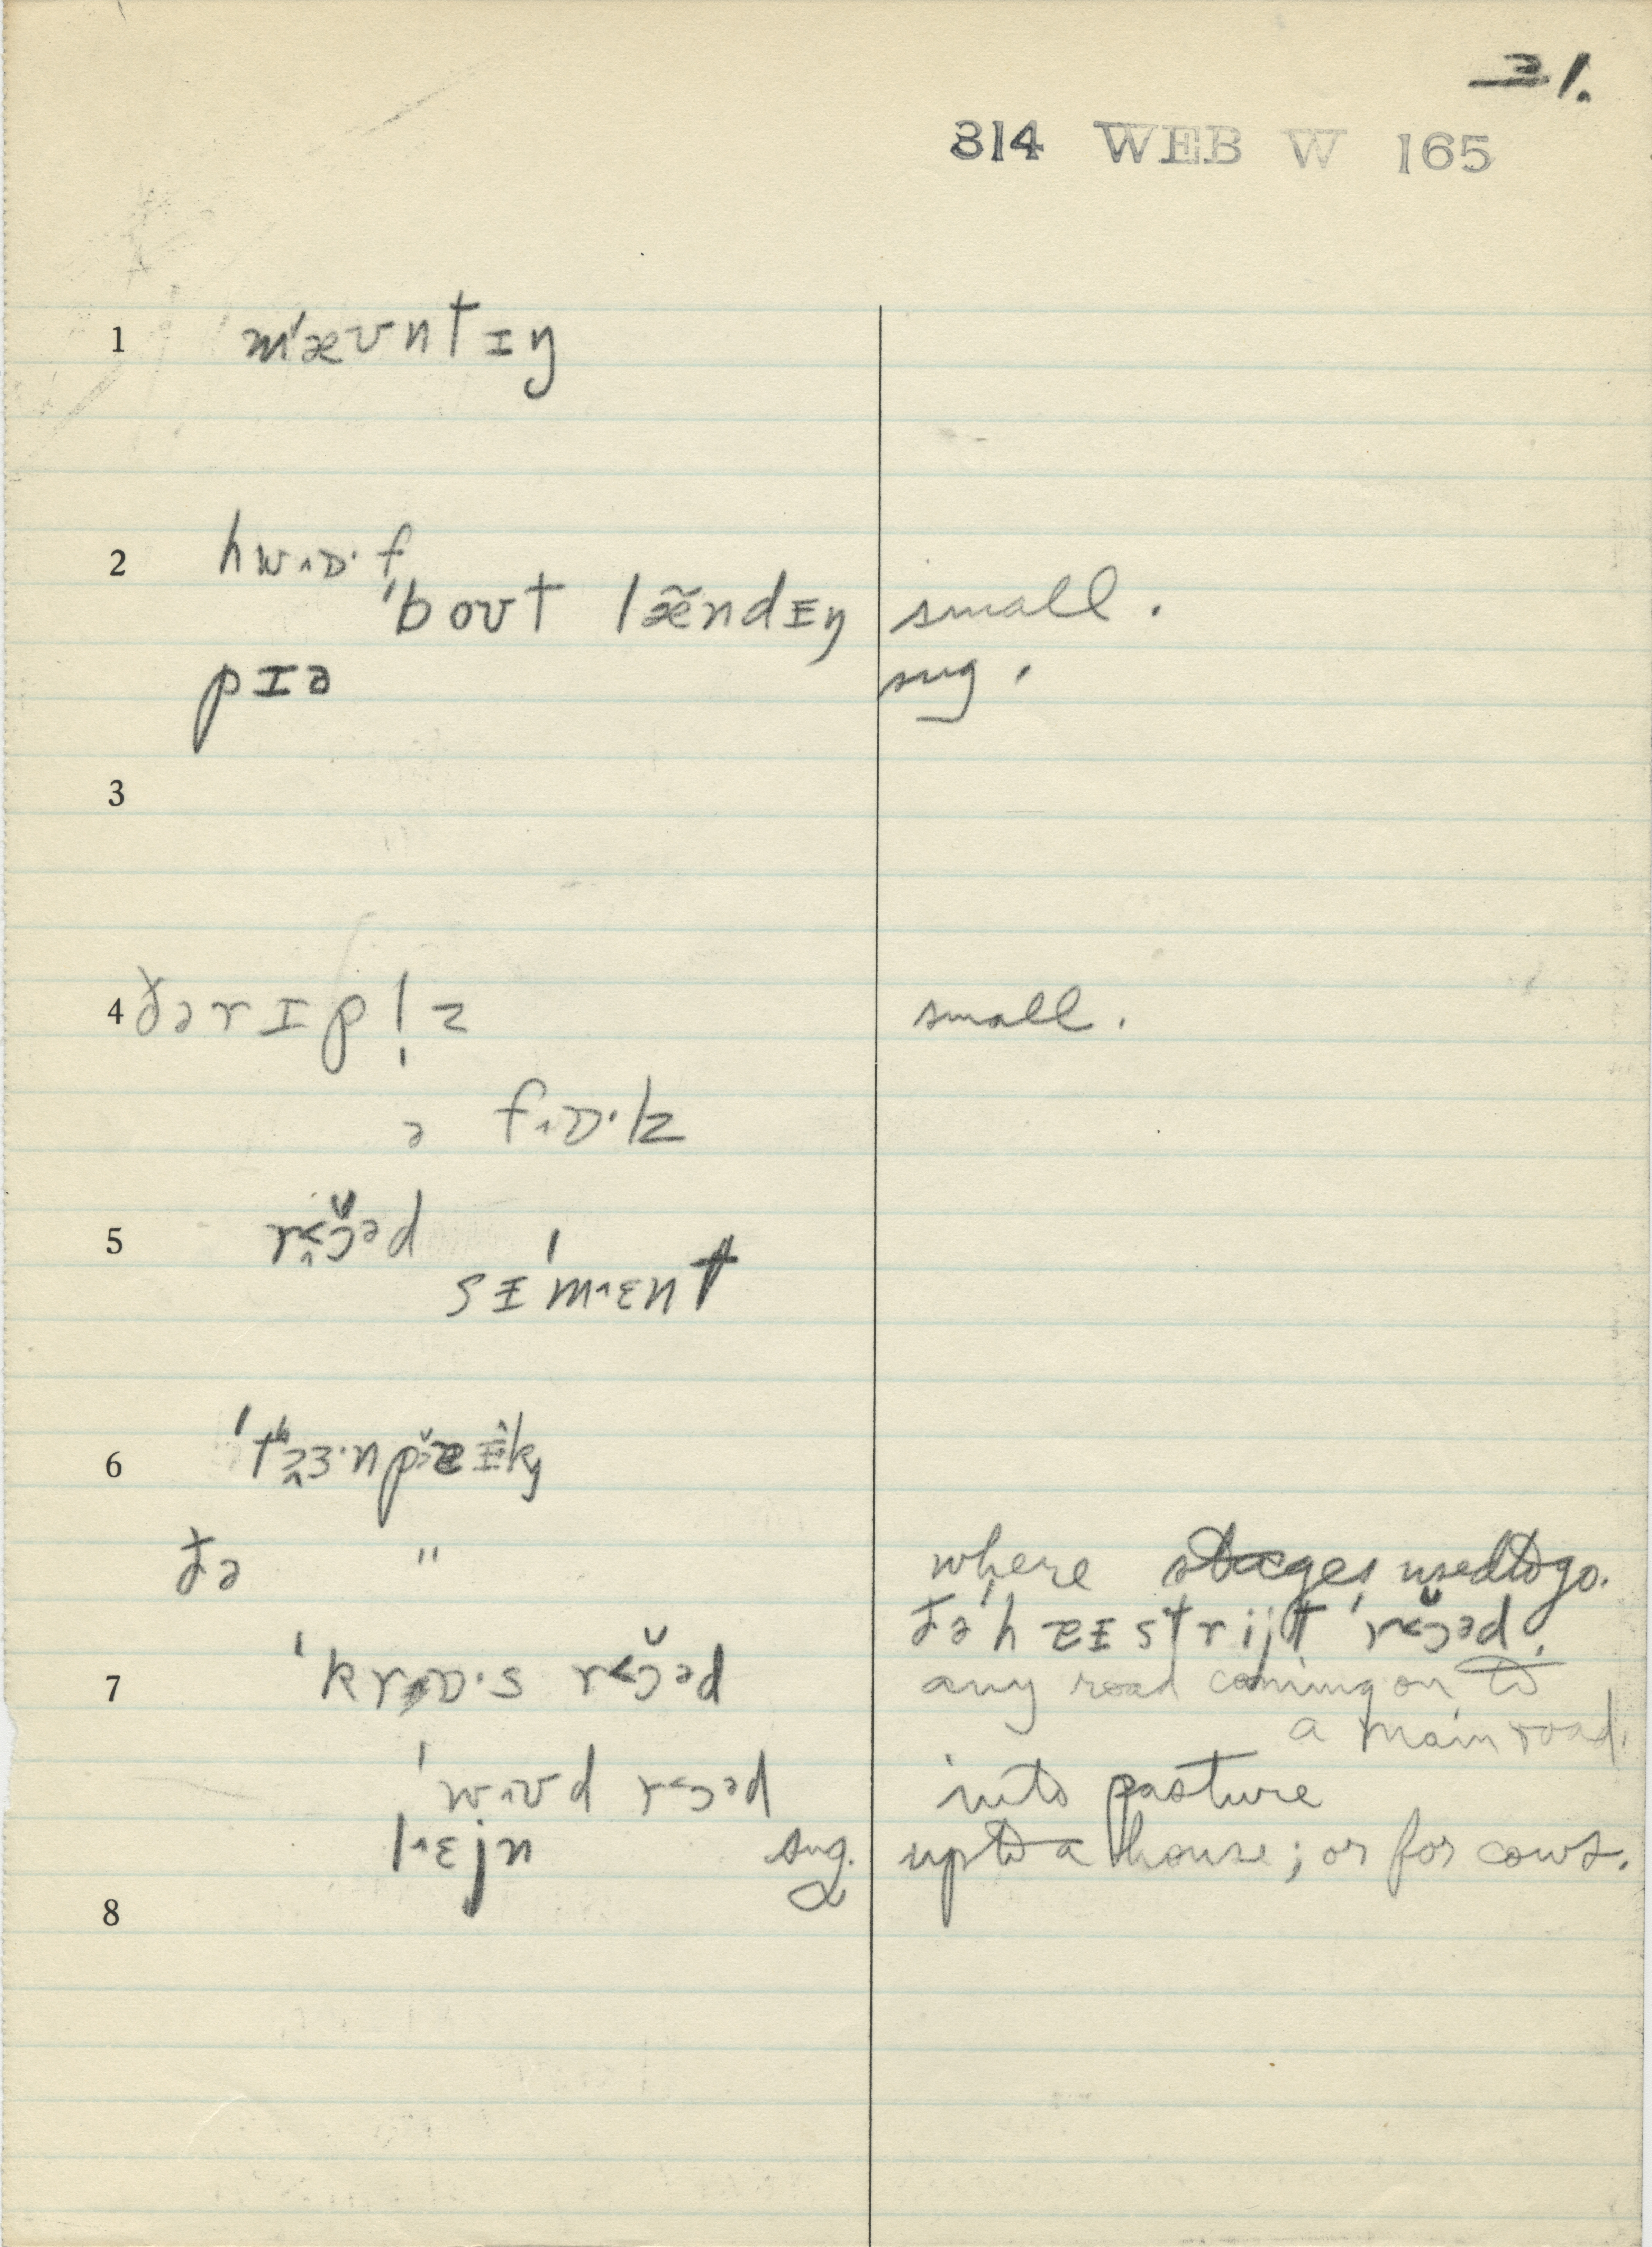 31.
314 WEB W 165
1 mˈæʊntɪŋ
2 hwɒ·f
ˈboʊt læ̃ndɪŋ small.
pɪə sug.
3
4 ðə rɪpl̩z small.
ə fɒ·lz
5 rɔ̆əd
sɪˈmɛnt
6 ˈtʰɜ·npɐɪk
ðə " where stages used to go.
ðə ˈhɐɪstrijt ˈrɔ̆əd.
7 ˈkrɒ·s rɔ̆əd any road coming on to
a main road.
ˈwʊd rɔəd into pasture
lɛjn sug. up to a house; or for cows.
8